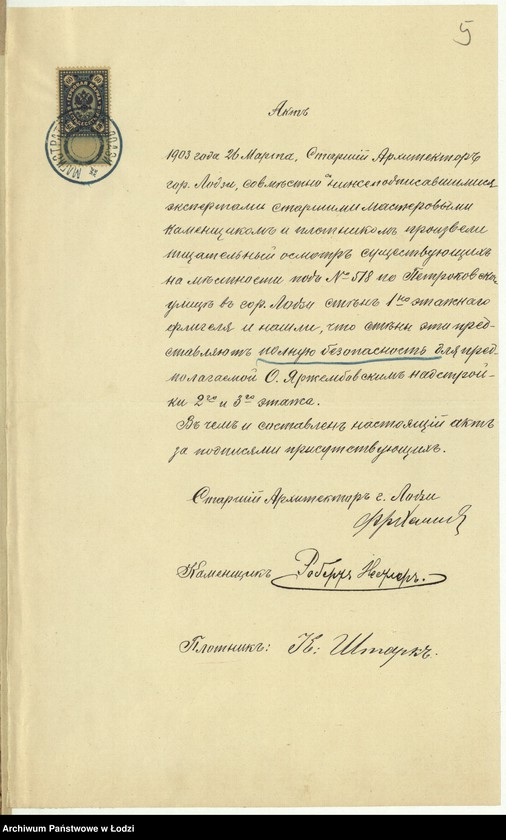 5
Актъ
1903 года 26 Марта, Старшій Архитекторъ
гор. Лодзи, совмѣстно съ нижеподписавшимися
экспертами старшими мастеровыми
каменщикомъ и плотникомъ произвели
тщательный осмотръ существующихъ
на мѣстности подъ № 518 по Петроковской
улицѣ въ гор. Лодзи стѣнъ 1го этажнаго
флигеля и нашли, что стѣны эти пред-
ставляютъ полную безопасность для пред-
полагаемой О. Яржембовскимъ надстрой-
ки 2го и 3го этажа.
Въ чемъ и составленъ настоящій актъ
за подписями присутствующихъ.
Старшій Архитекторъ г. Лодзи
Каменщикъ Робертъ
Плотникъ: К: Штаркъ.
МАГИСТРАТЪ
Archiwum Państwowe w Łodzi